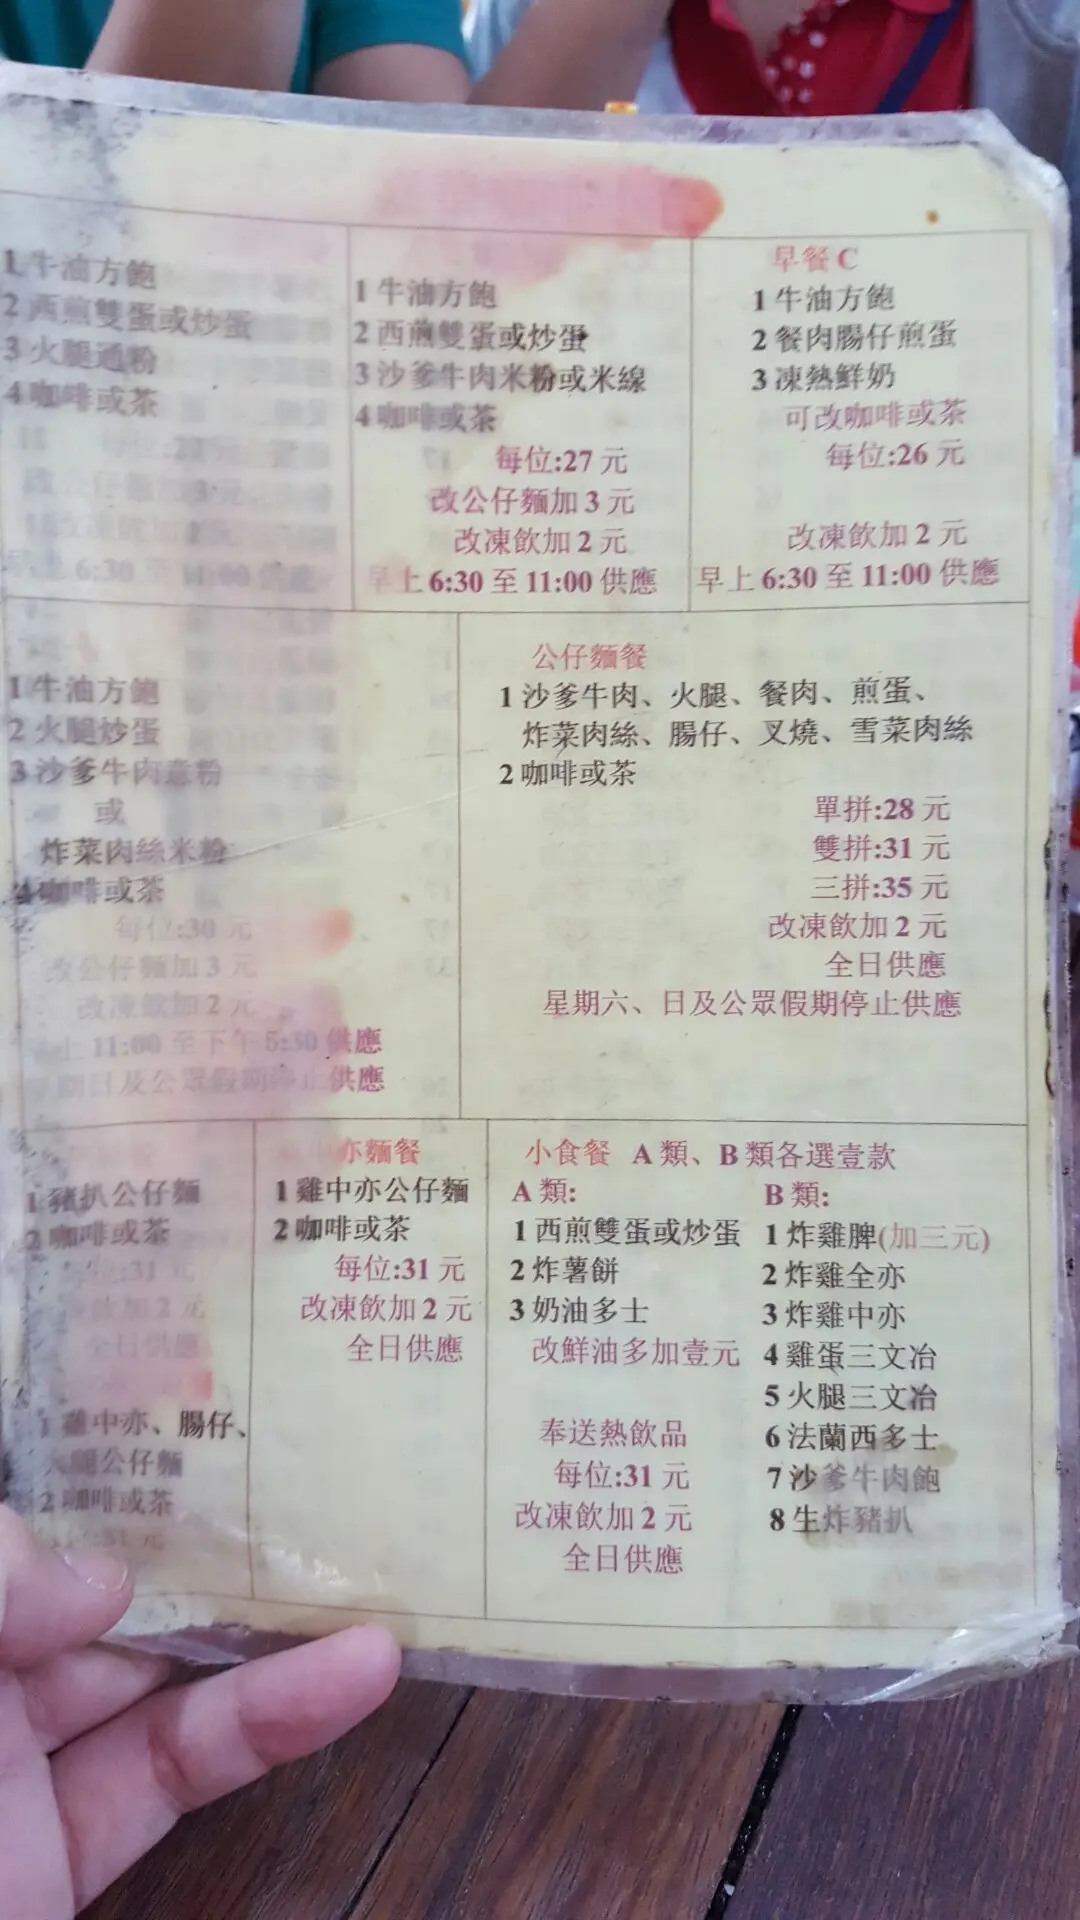 1 牛油方飽
2 西煎雙蛋或炒蛋
3 火腿通粉
4 咖啡或茶
6:30 至 11:00 供應
1 牛油方飽
2 西煎雙蛋或炒蛋
3 沙爹牛肉米粉或米線
4 咖啡或茶
每位:27 元
改公仔麵加 3 元
改凍飲加 2 元
早上 6:30 至 11:00 供應
早餐 C
1 牛油方飽
2 餐肉腸仔煎蛋
3 凍熱鮮奶
可改咖啡或茶
每位:26 元
改凍飲加 2 元
早上 6:30 至 11:00 供應
1 牛油方飽
2 火腿炒蛋
3 沙爹牛肉意粉
或
炸菜肉絲米粉
4 咖啡或茶
每位:30 元
改公仔麵加 3 元
改凍飲加 2 元
上 11:00 至下午 5:30 供應
期日及公眾假期停止供應
公仔麵餐
1 沙爹牛肉、火腿、餐肉、煎蛋、
炸菜肉絲、腸仔、叉燒、雪菜肉絲
2 咖啡或茶
單拼:28 元
雙拼:31 元
三拼:35 元
改凍飲加 2 元
全日供應
星期六、日及公眾假期停止供應
1 豬扒公仔麵
2 咖啡或茶
每位:31 元
飲加 2 元
全日供應
1 雞中亦、腸仔、
腿公仔麵
2 咖啡或茶
亦麵餐
1 雞中亦公仔麵
2 咖啡或茶
每位:31 元
改凍飲加 2 元
全日供應
小食餐 A 類、B 類各選壹款
A 類:
1 西煎雙蛋或炒蛋
2 炸薯餅
3 奶油多士
改鮮油多加壹元
奉送熱飲品
每位:31 元
改凍飲加 2 元
全日供應
B 類:
1 炸雞脾(加三元)
2 炸雞全亦
3 炸雞中亦
4 雞蛋三文冶
5 火腿三文冶
6 法蘭西多士
7 沙爹牛肉飽
8 生炸豬扒